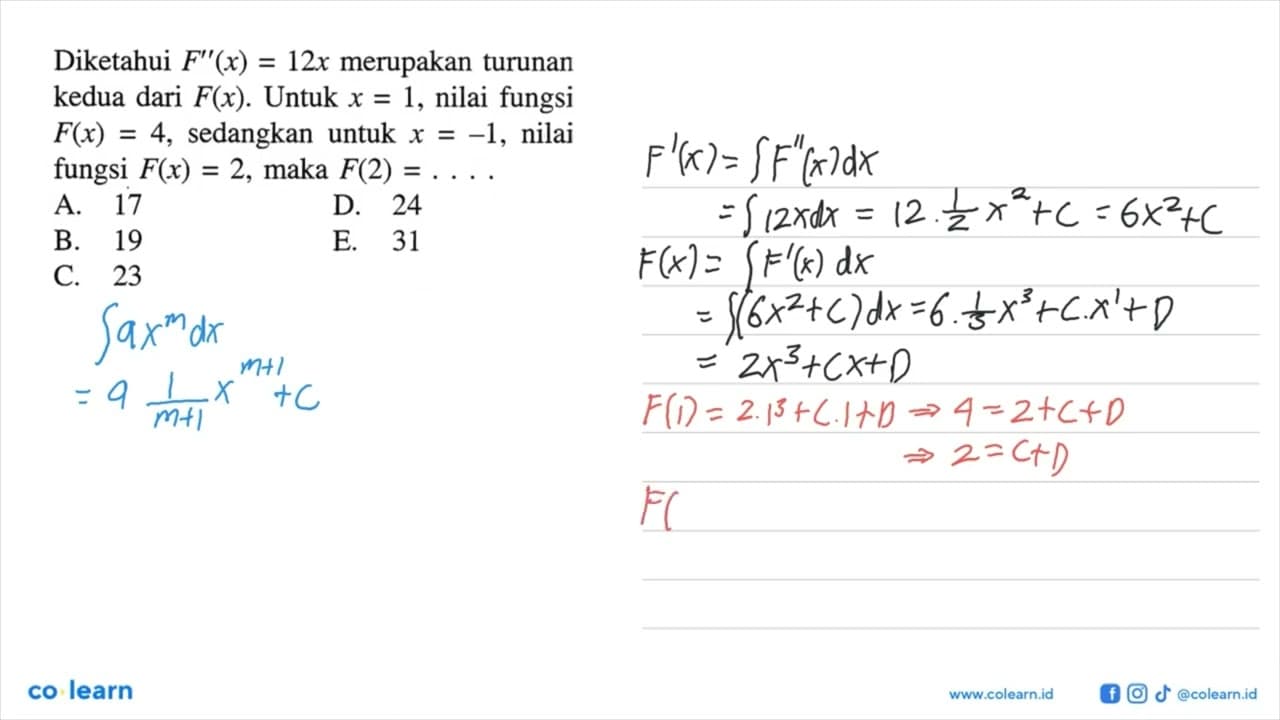 Diketahui F''(x) = 12x merupakan turunan
kedua dari F(x). Untuk x = 1, nilai fungsi
F(x) = 4, sedangkan untuk x = –1, nilai
fungsi F(x) = 2, maka F(2) = . . . .
A. 17 D. 24
B. 19 E. 31
C. 23
∫ax^m dx
= a 1/(m+1) x^(m+1) + C
F'(x) = ∫F''(x)dx
= ∫12xdx = 12 . 1/2 x² + C = 6x² + C
F(x) = ∫F'(x) dx
= ∫(6x² + C)dx = 6 . 1/3 x³ + C.x¹ + D
= 2x³ + Cx + D
F(1) = 2.1³ + C.1 + D ⇒ 4 = 2 + C + D
⇒ 2 = C + D
F(
co learn
www.colearn.id @colearn.id